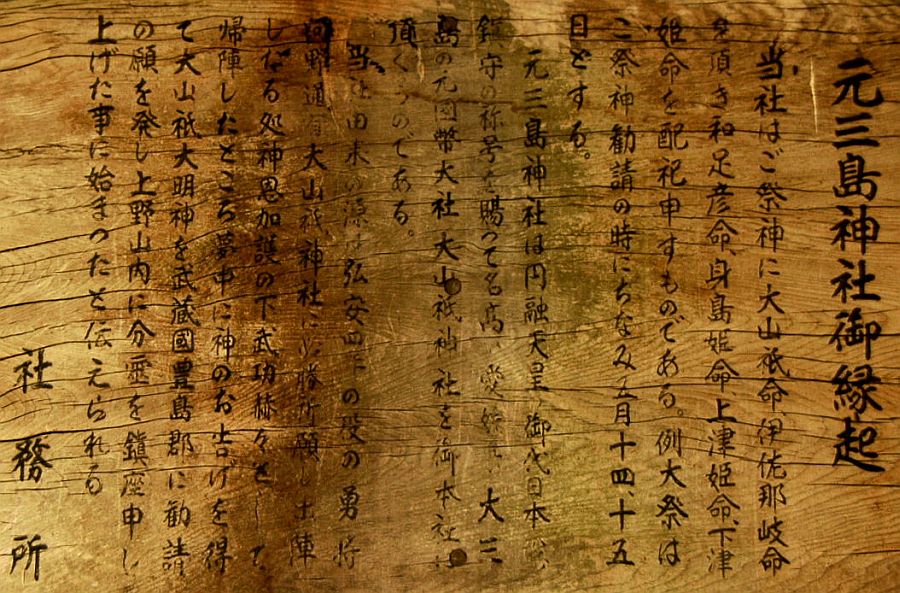 元三島神社御縁起
当社はご祭神に大山祇命、伊佐那岐命
を頂き和足彦命、身島姫命、上津姫命、下津
姫命を配祀申すものである。例大祭は
ご祭神勧請の時にちなみ五月十四、十五
日とする。
元三島神社は円融天皇御代日本
鎮守の称号を賜って名高、愛媛 大三
島の元國幣大社大山祇神社を御本社に
頂くものである。
当社由来の源は弘安四年の役の勇将
河野通有大山祇神社に必勝祈願し出陣
しなる処神恩加護の下武功赫々として
帰陣したところ夢中に神のお告げを得
て大山祇大明神を武蔵國豊島郡に勧請
の願を発し上野山内に分霊を鎮座申し
上げた事に始まったと伝えられる
社務所